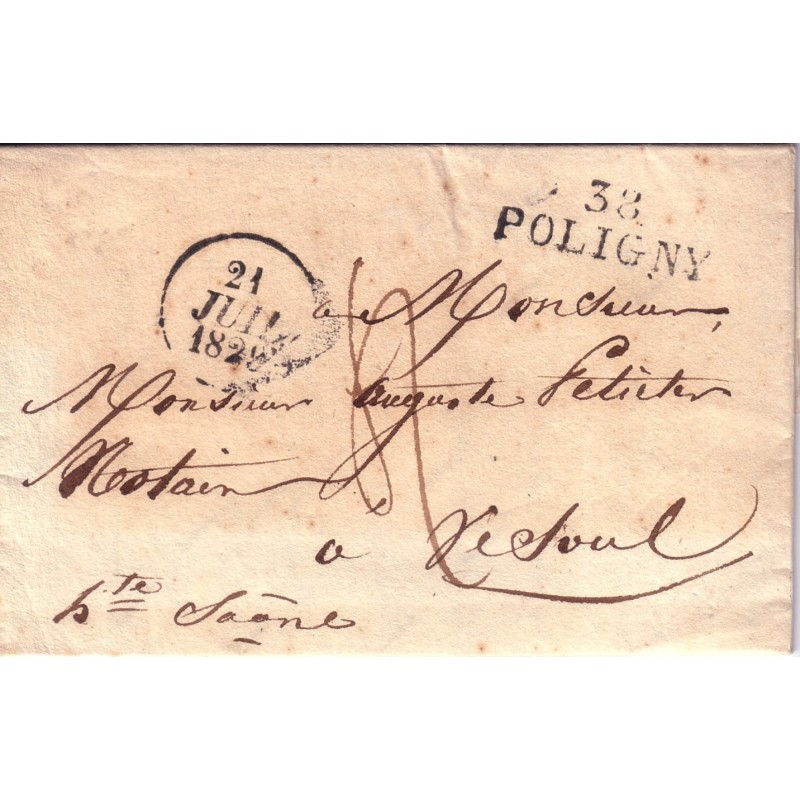 38
POLIGNY
21
JUIL
1829
a Monsieur,
Monsieur auguste
Notaire
à Vesoul
hte Saône